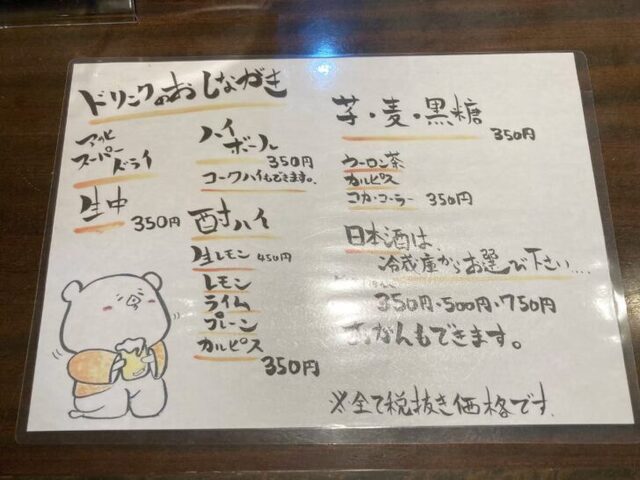 ドリンクのおしながき
アサヒ
スーパー
ドライ
生中
350円
ハイ
ボール
350円
コークハイもできます。
酎ハイ
生レモン 450円
レモン
ライム
プレーン
カルピス
350円
芋・麦・黒糖
350円
ウーロン茶
カルピス
コカ・コーラー 350円
日本酒は、
冷蔵庫からお選び下さい…
350円・500円・750円
おかんもできます。
※全て税抜き価格です